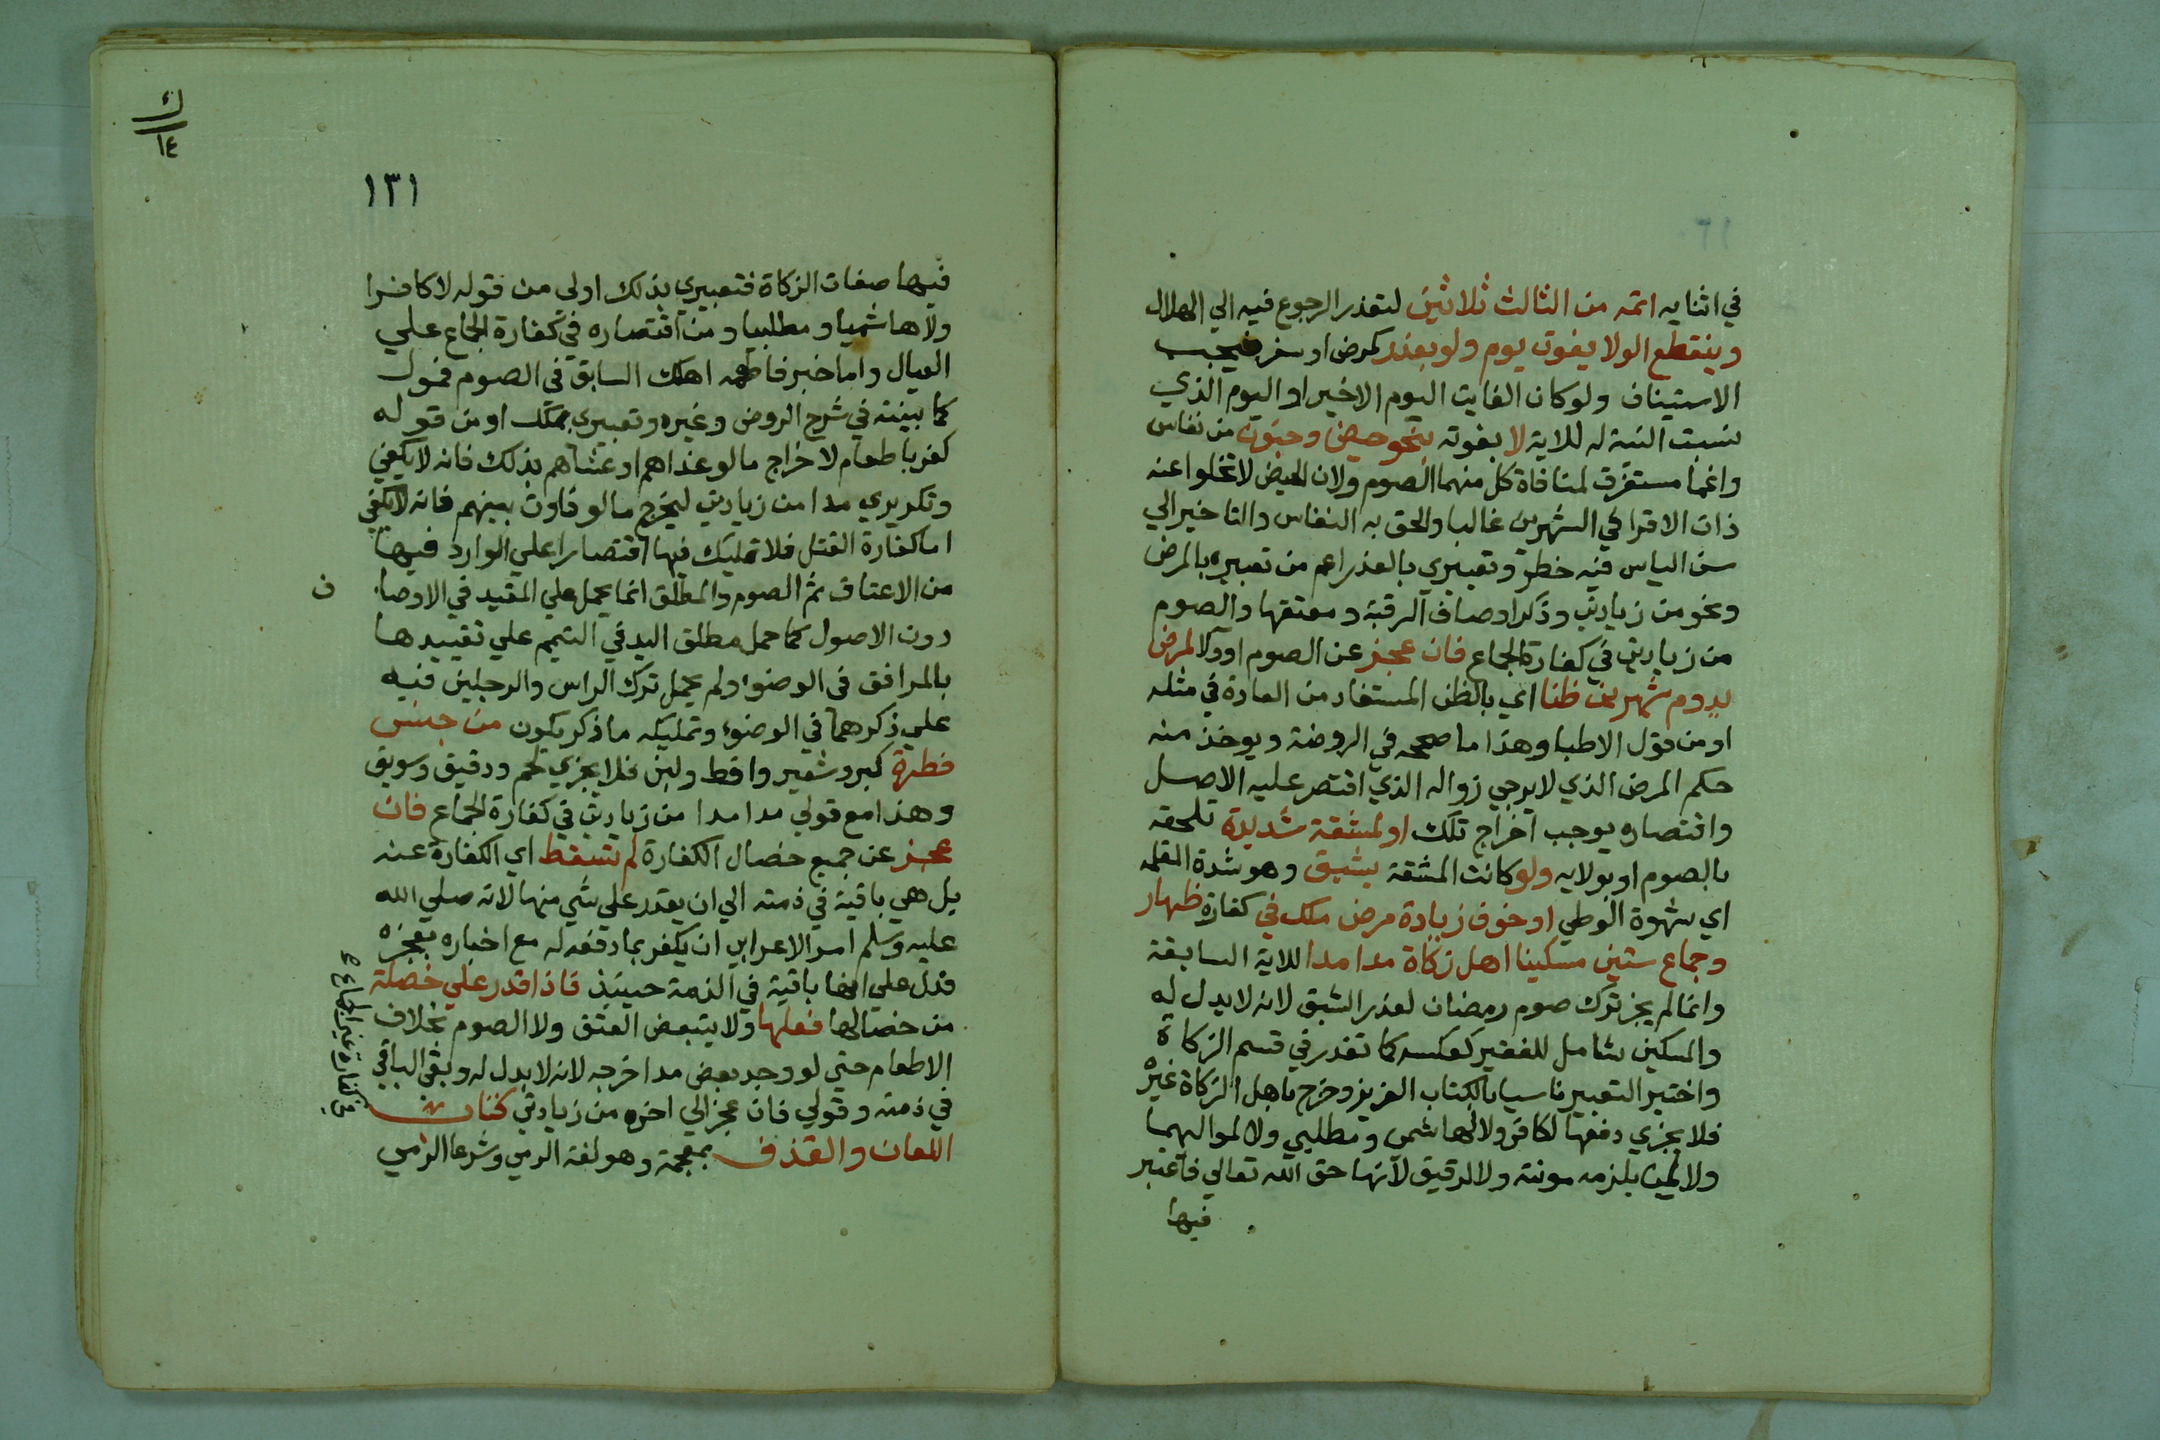 في اثنايه اتمه من الثالث ثلاثين لتعذر الرجوع فيه الي الهلال
وينقطع الولا بفوت يوم ولو بعذر كمرض او سفر فيجب
الاستيناف ولو كان الفايت اليوم الاخير او اليوم الذي
نسيت النية له للاية لا بفوته بنحو حيض وجنون من نفاس
واغما مستغرق لمنافاة كل منهما الصوم ولان الحيض لا تخلوا عنه
ذات الاقرا في الشهرين غالبا والحق به النفاس والتاخير الي
سن الياس فيه خطر وتعبيري بالعذر اعم من تعبيره بالمرض
ونحو من زيادتي وذكر اوصاف الرقبة ومعتقها والصوم
من زيادتي في كفارة الجماع فان عجز عن الصوم او ولا لمرض
يدوم شهرين ظنا اي بالظن المستفاد من العادة في مثله
او من قول الاطبا وهذا ما صححه في الروضة ويوخذ منه
حكم المرض الذي لا يرجي زواله الذي اقتصر عليه الاصل
واقتصاره يوجب اخراج تلك او لمشقة شديدة تلحقه
بالصوم او بولايه ولو كانت المشقة بشبق وهو شدة الغلمه
اي شهوة الوطي او خوف زيادة مرض ملك في كفارة ظهار
وجماع ستين مسكينا اهل زكاة مدا مدا للاية السابقة
وانما لم يجز ترك صوم رمضان لعذر الشبق لانه لا بدل له
والمسكين شامل للفقير كعكسه كما تقدر في قسم الزكاة
واختير التعبير تاسيا بالكتاب العزيز وخرج باهل الزكاة غيره
فلا يجزي دفعها لكافر ولا لهاشمي ومطلبي ولا لمواليهما
ولا لمن يلزمه مونته ولا لرقيق لانها حق الله تعالي فاعتبر
فيها
ك
١٤
١٣١
فيها صفات الزكاة فتعبيري بذلك اولي من قوله لا كافرا
ولا هاشميا ومطلبيا ومن اقتصاره في كفارة الجماع علي
العيال واما خبر فاطعمه اهلك السابق في الصوم فمول
كما بينته في شرح الروض وغيره وتعبيري بملك او من قوله
كفر باطعام لاخراج ما لو غداهم او عشاهم بذلك فانه لا يكفي
وتكريري مدا من زيادتي ليخرج ما لو فاوت بينهم فانه لا يكفي
اما كفارة القتل فلا تمليك فيها اقتصارا علي الوارد فيها
من الاعتاق ثم الصوم والمطلق انما يحمل علي المقيد في الاوصا
ف
دون الاصول كما حمل مطلق اليد في التيمم علي تقييدها
بالمرافق في الوضوء ولم يحمل ترك الراس والرجلين فيه
علي ذكرهما في الوضوء وتمليكه ما ذكر يكون من جنس
فطرة كبر وشعير واقط ولبن فلا يجزي لحم ودقيق وسويق
وهذا مع قولي مدا مدا من زيادتي في كفارة الجماع فان
عجز عن جميع خصال الكفارة لم تسقط اي الكفارة عنه
بل هي باقية في ذمته الي ان يقدر علي شي منها لانه صلي الله
عليه وسلم امر الاعرابي ان يكفر بما دفعه له مع اخباره بعجزه
فدل علي انها باقية في الذمة حينيذ فاذا قدر علي خصلة
من خصالها فعلها ولا يتبعض العتق ولا الصوم بخلاف
الاطعام حتي لو وجد بعض مد اخرجه لانه لا بدل له وبقي الباقي
في ذمته وقولي فان عجز الي اخره من زيادتي كتاب
في كفارة غير الجماع
اللعان والقذف بمعجمة وهو لغة الرمي وشرعا الرمي